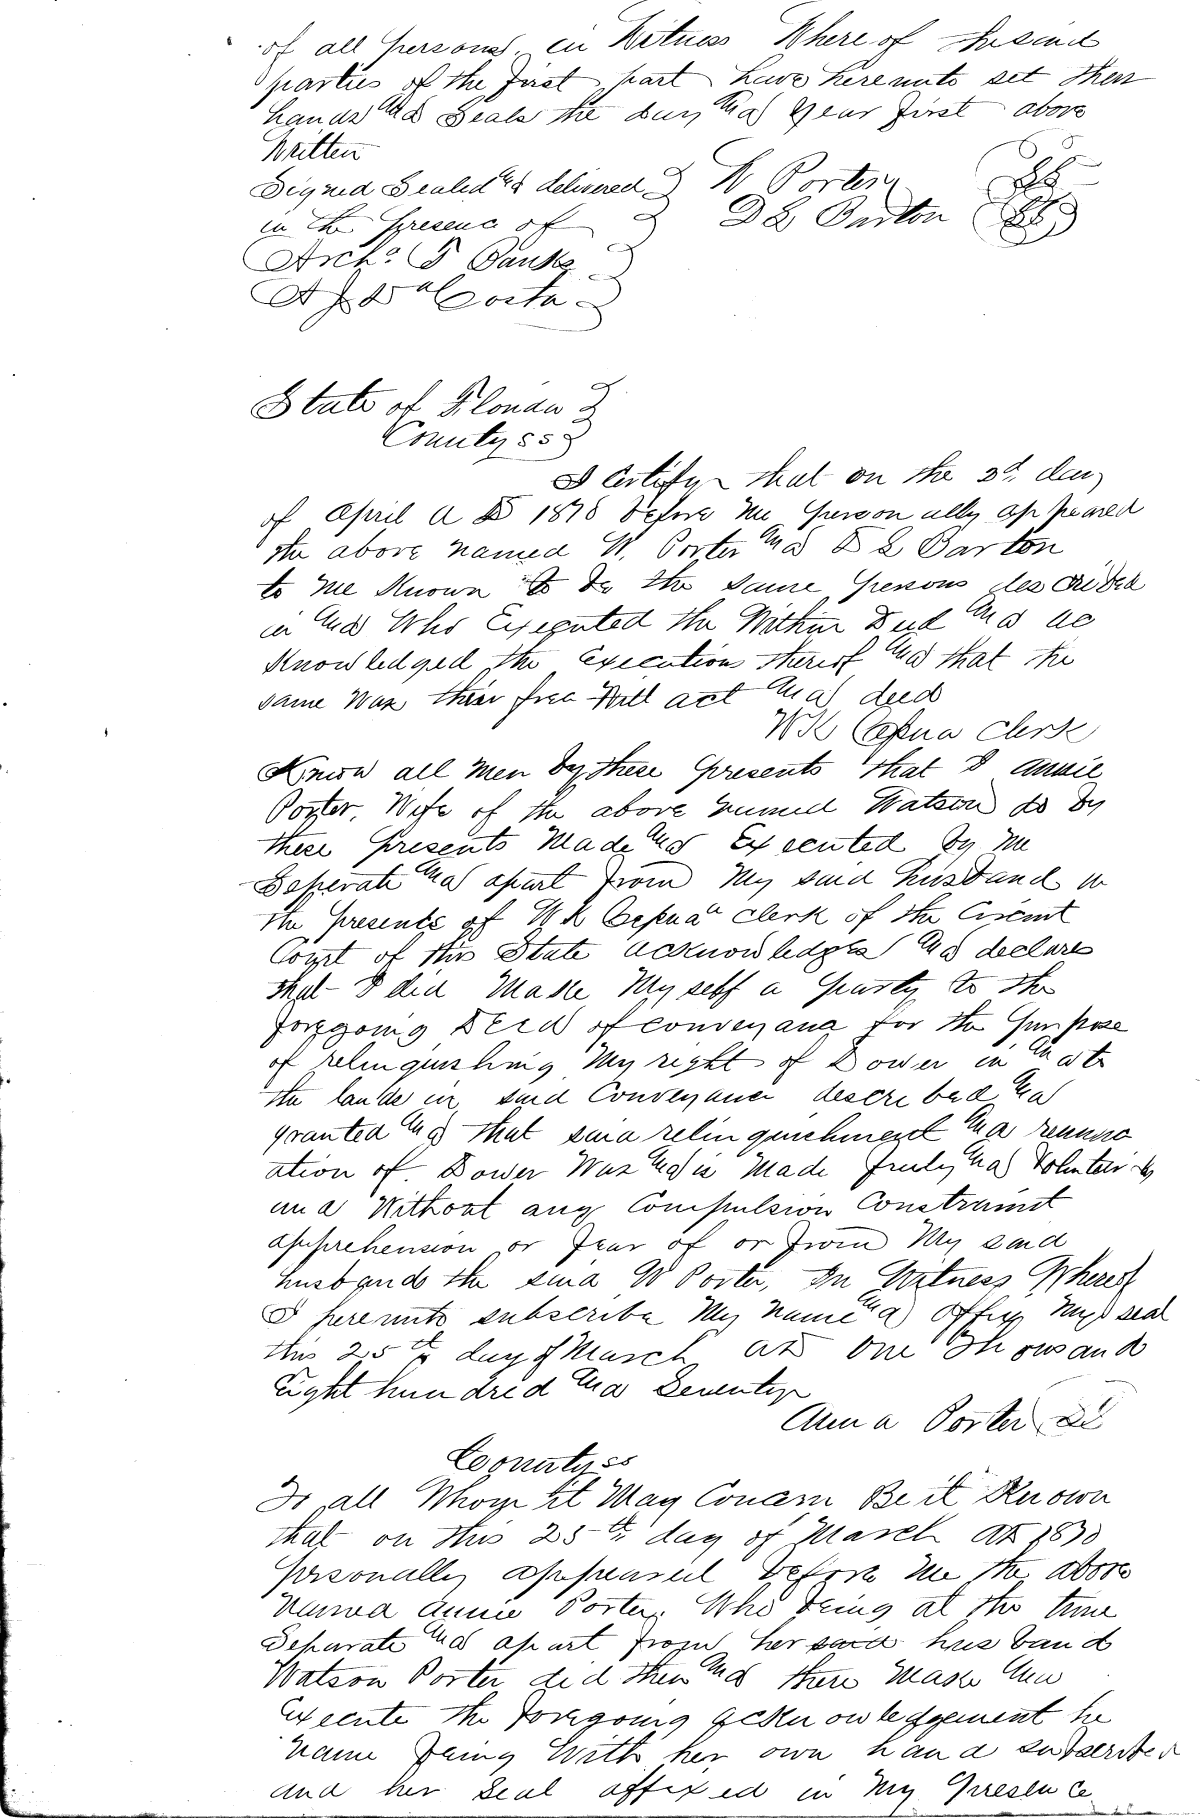 of all persons, in Witness Where of the said
parties of the first part have hereunto set their
hands and Seals the day and year first above
Written
Signed Sealed and delivered W Porter LS
in the presenc of D L Barton LS
Archd T Banks
A J DaCosta
State of Florida
County ss
I Certify that on the 3d day
of April A D 1878 before me personally appeared
the above named W. Porter and D L Barton
to me Known to be the same persons described
in and Who Executed the Within Deed and ac
Knowledged the Execution thereof and that the
same Was their free Will act and deed
W K Cessna Clerk
Know all Men by these presents that I Annie
Porter, Wife of the above named Watson do by
these presents Made and Executed by me
Seperate and apart from My said husband in
the presents of W K Cessna clerk of the Circuit
Court of this State acknowledge and declare
that I did Make Myself a party to the
foregoing Deed of conveyance for the purpose
of relinquishing My right of Dower in and to
the lands in said Conveyance described and
granted and that said relinquishment and renunci
ation of Dower Was and is Made freely and Volunterily
and Without any Compulsion Constraint
apprehension or fear of or from My said
husband the said W Porter, In Witness Whereof
I hereunto subscribe My Name and affix My seal
this 25th day of March AD One Thousand
Eight hundred and Seventy
Anna Porter LS
County ss
To all Whom it May Concern Be it Known
that on this 25th day of March AD 1870
personally appeared before me the above
Named Annie Porter, Who being at the time
Separate and apart from her said husband
Watson Porter did then and there Make and
Execute the foregoing acknowledgement he
name being With her own hand subscribed
and her Seal affixed in My presence